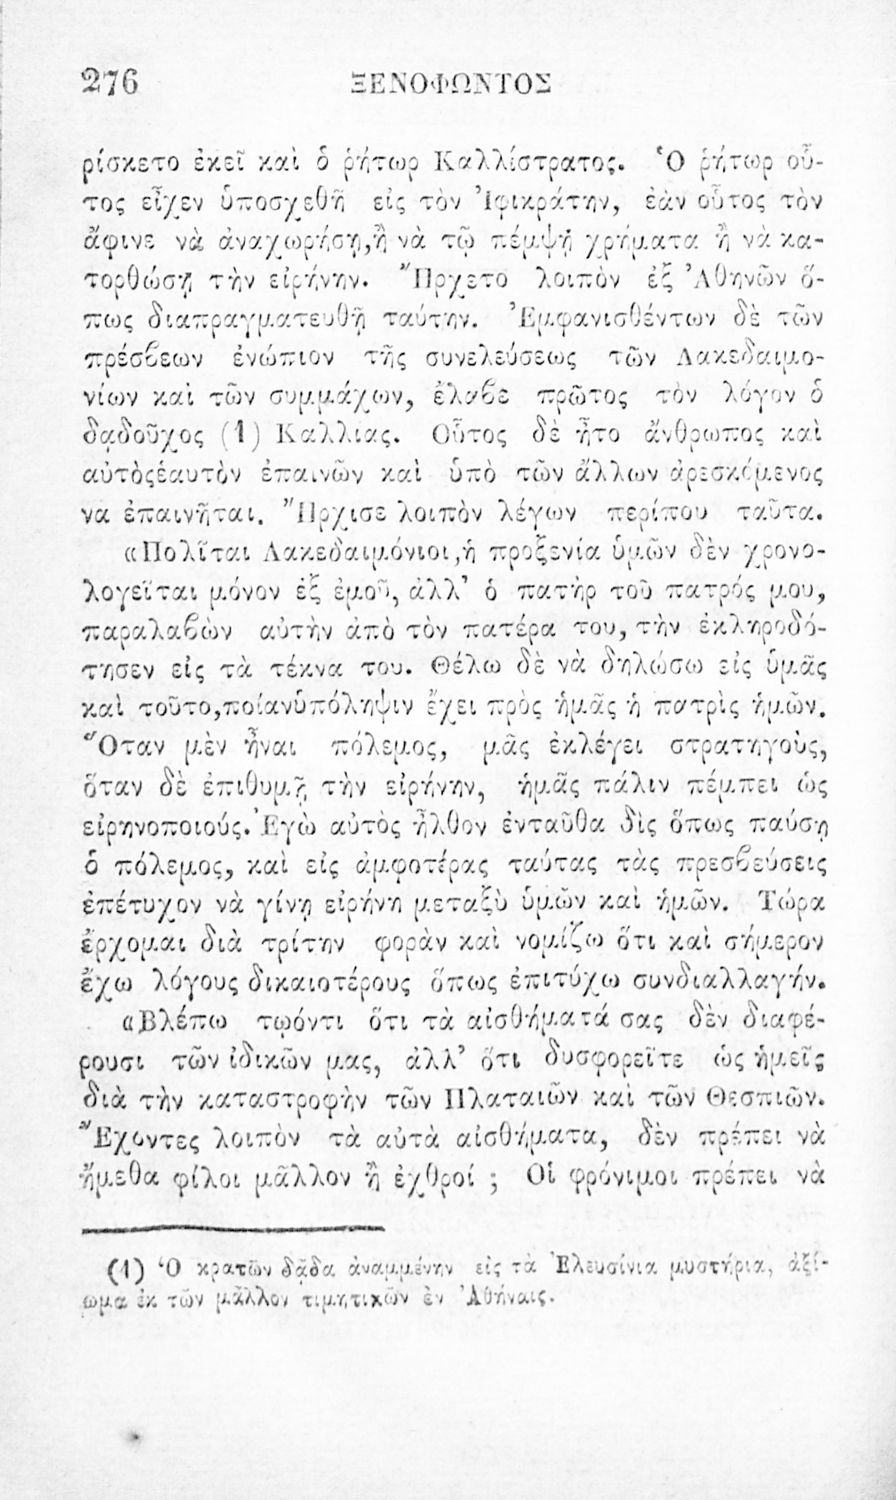 276 ΞΕΝΟΦΩΝΤΟΣ
ρίσκετο ἐκεῖ καὶ ὁ ῥήτωρ Καλλίστρατος. Ὁ ῥήτωρ οὗ-
τος εἶχεν ὑποσχεθῆ εἰς τὸν Ἰφικράτην, ἐὰν οὗτος τὸν
ἄφινε νὰ ἀναχωρήσῃ,ἢ νὰ τῷ πέμψῃ χρήματα ἢ νὰ κα-
τορθώσῃ τὴν εἰρήνην. Ἤρχετο λοιπὸν ἐξ Ἀθηνῶν ὅ-
πως διαπραγματευθῇ ταύτην. Ἐμφανισθέντων δὲ τῶν
πρέσβεων ἐνώπιον τῆς συνελεύσεως τῶν Λακεδαιμο-
νίων καὶ τῶν συμμάχων, ἔλαβε πρῶτος τὸν λόγον ὁ
δᾳδοῦχος (1) Καλλίας. Οὗτος δὲ ἦτο ἄνθρωπος καὶ
αὐτὸςἑαυτὸν ἐπαινῶν καὶ ὑπὸ τῶν ἄλλων ἀρεσκόμενος
να ἐπαινῆται. Ἤρχισε λοιπὸν λέγων περίπου ταῦτα.
«Πολῖται Λακεδαιμόνιοι,ἡ προξενία ὑμῶν δὲν χρονο-
λογεῖται μόνον ἐξ ἐμοῦ, ἀλλ' ὁ πατὴρ τοῦ πατρός μου,
παραλαβὼν αὐτὴν ἀπὸ τὸν πατέρα του, τὴν ἐκληροδό-
τησεν εἰς τὰ τέκνα του. Θέλω δὲ νὰ δηλώσω εἰς ὑμᾶς
καὶ τοῦτο,ποίανὑπόληψιν ἔχει πρὸς ἡμᾶς ἡ πατρὶς ἡμῶν.
Ὅταν μὲν ἦναι πόλεμος, μᾶς ἐκλέγει στρατηγοὺς,
ὅταν δὲ ἐπιθυμῇ τὴν εἰρήνην, ἡμᾶς πάλιν πέμπει ὡς
εἰρηνοποιούς. Ἐγὼ αὐτὸς ἦλθον ἐνταῦθα δὶς ὅπως παύσῃ
ὁ πόλεμος, καὶ εἰς ἀμφοτέρας ταύτας τὰς πρεσβεύσεις
ἐπέτυχον νὰ γίνῃ εἰρήνη μεταξὺ ὑμῶν καὶ ἡμῶν. Τώρα
ἔρχομαι διὰ τρίτην φορὰν καὶ νομίζω ὅτι καὶ σήμερον
ἔχω λόγους δικαιοτέρους ὅπως ἐπιτύχω συνδιαλλαγήν.
«Βλέπω τῳόντι ὅτι τὰ αἰσθήματά σας δὲν διαφέ-
ρουσι τῶν ἰδικῶν μας, ἀλλ' ὅτι δυσφορεῖτε ὡς ἡμεῖς
διὰ τὴν καταστροφὴν τῶν Πλαταιῶν καὶ τῶν Θεσπιῶν.
Ἔχοντες λοιπὸν τὰ αὐτὰ αἰσθήματα, δὲν πρέπει νὰ
ἤμεθα φίλοι μᾶλλον ἢ ἐχθροί ; Οἱ φρόνιμοι πρέπει νὰ
(1) Ὁ κρατῶν δᾷδα ἀναμμένην εἰς τὰ Ἐλευσίνια μυστήρια, ἀξί-
ωμα ἐκ τῶν μᾶλλον τιμητικῶν ἐν Ἀθήναις.